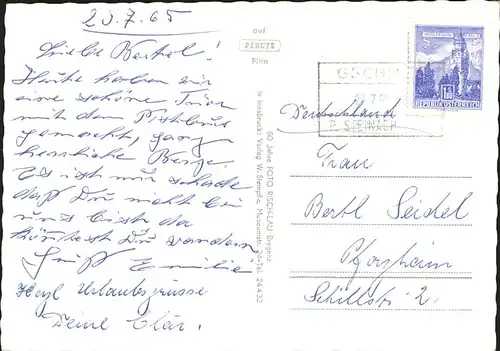 20.7.65
Liebe Bertel!
Heute haben wir
eine schöne Tour
mit dem
gemacht, ganz
herrliche Berge.
Es ist nur schade
daß Du nicht bei
uns bist da
könntest Du wandern
Gruß Emilie
Herzl Urlaubsgrüsse
Deine Clär.
auf
PERUTZ
Film
60 Jahre FOTO RISCHLAU Bregenz
In Innsbruck: Verlag W. Stempfle, Museumstr. 24-Tel. 24433
GSCHN
STEINACH
REPUBLIK ÖSTERREICH
Deutschland
Frau
Bertl Seidel
Pforzheim
Schillstr 2.